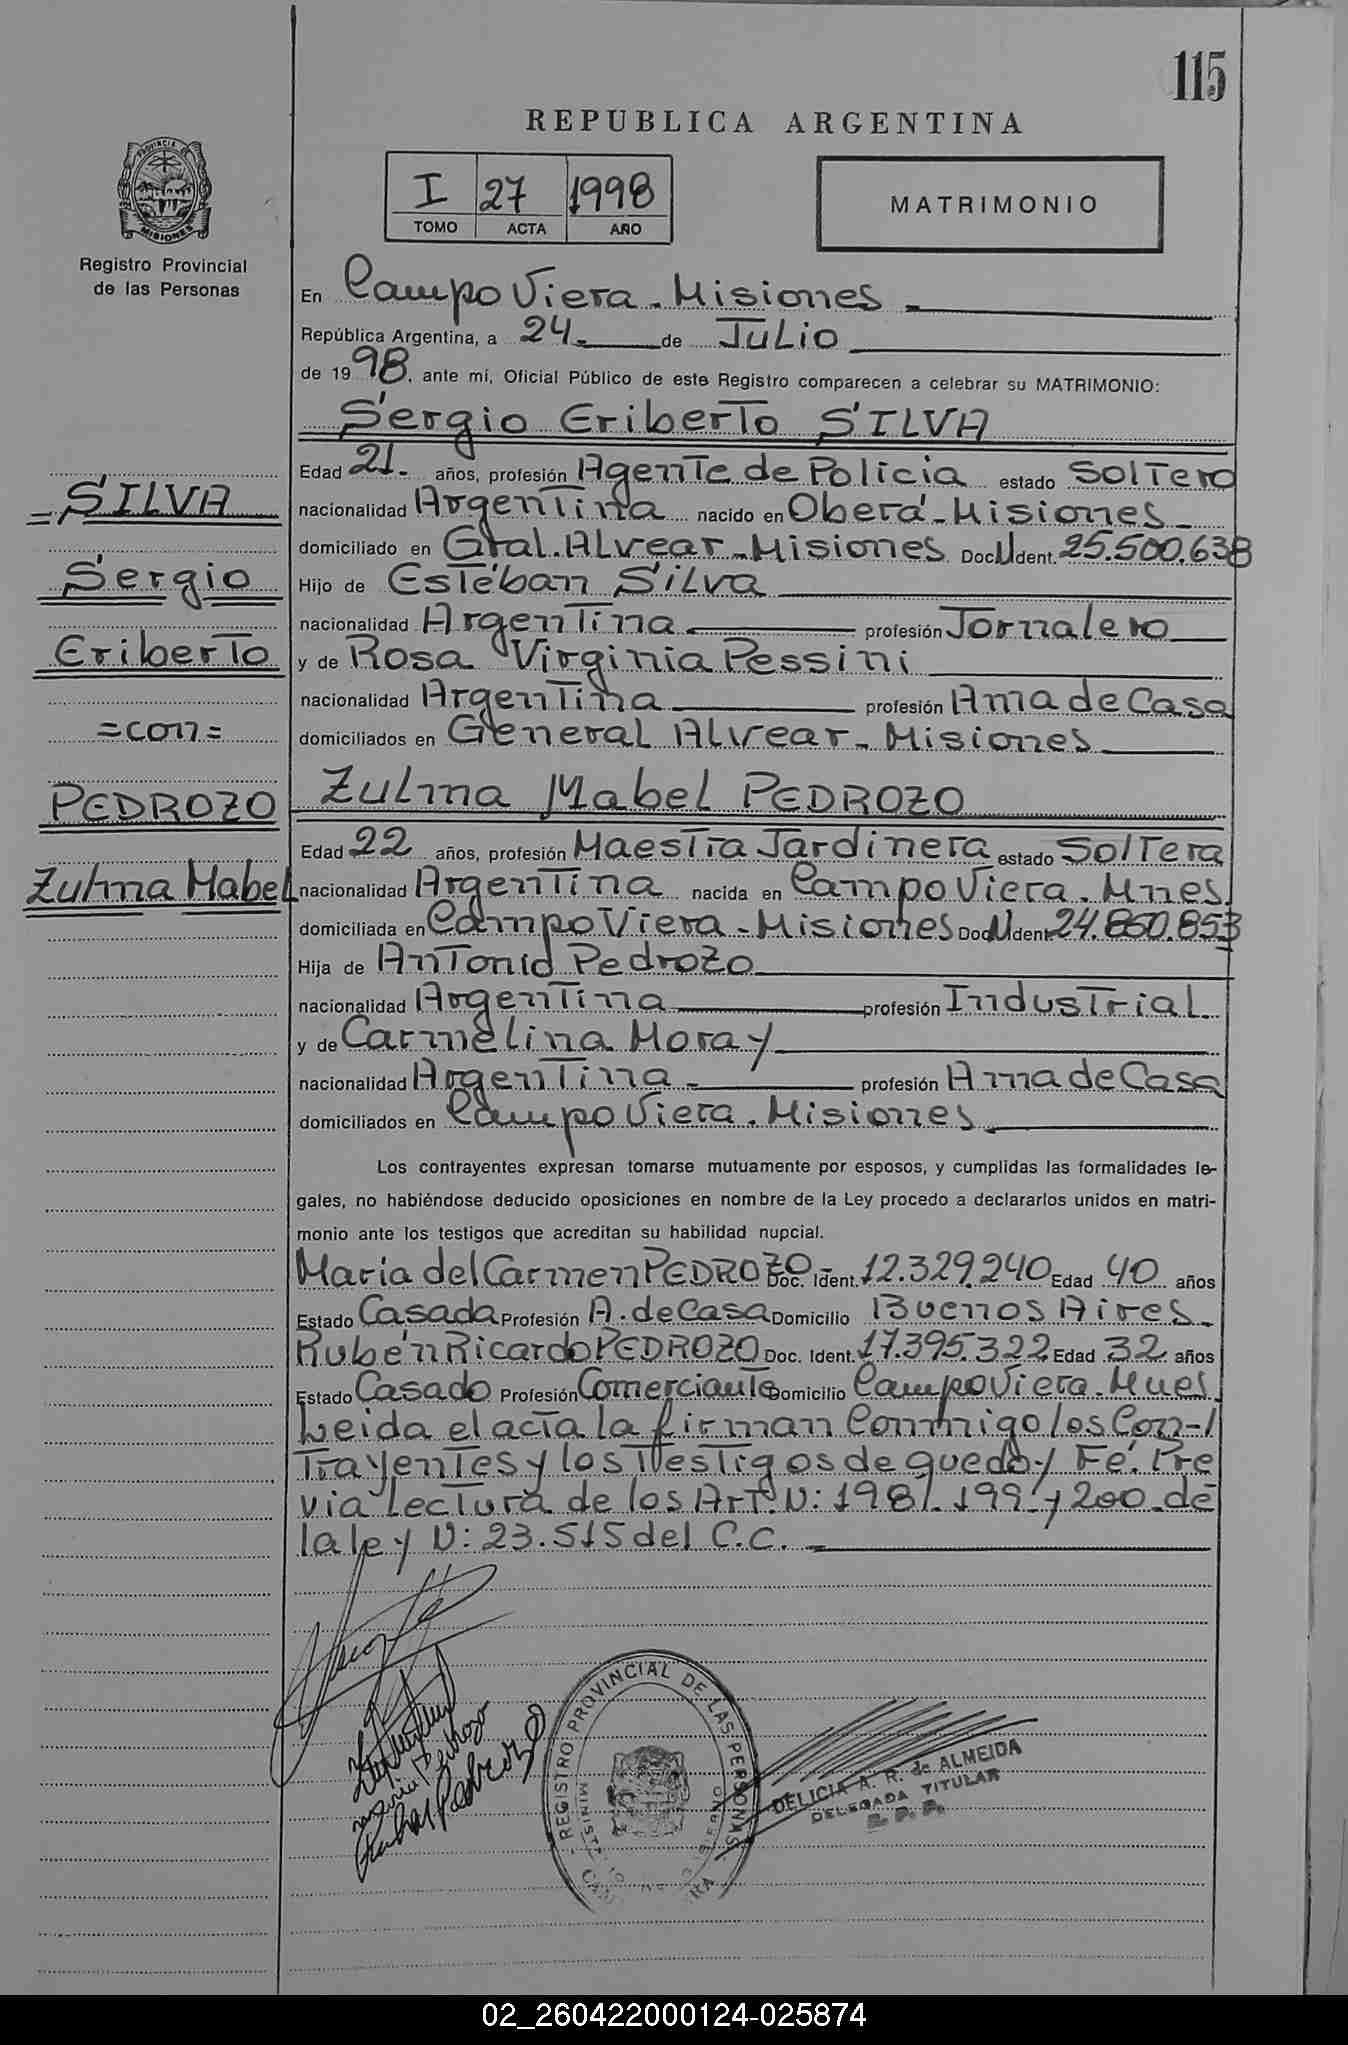 115
REPUBLICA ARGENTINA
I 27 1998
TOMO ACTA AÑO
MATRIMONIO
PROVINCIA DE
MISIONES
Registro Provincial
de las Personas
En Campo Viera - Misiones
República Argentina, a 24 de Julio
de 1998, ante mí, Oficial Público de este Registro comparecen a celebrar su MATRIMONIO:
Sergio Eriberto SILVA
Edad 21 años, profesión Agente de Policia estado Soltero
nacionalidad Argentina nacido en Oberá - Misiones
domiciliado en Gral. Alvear - Misiones Doc. N Ident. 25.500.638
Hijo de Estéban Silva
nacionalidad Argentina profesión Jornalero
y de Rosa Virginia Pessini
nacionalidad Argentina profesión Ama de Casa
domiciliados en General Alvear - Misiones
Zulma Mabel PEDROZO
Edad 22 años, profesión Maestra Jardinera estado Soltera
nacionalidad Argentina nacida en Campo Viera. Mnes.
domiciliada en Campo Viera - Misiones Doc. N Ident. 24.860.853
Hija de Antonio Pedrozo
nacionalidad Argentina profesión Industrial.
y de Carmelina Moray
nacionalidad Argentina profesión Ama de Casa
domiciliados en Campo Viera. Misiones
SILVA
Sergio
Eriberto
=con=
PEDROZO
Zulma Mabel
Los contrayentes expresan tomarse mutuamente por esposos, y cumplidas las formalidades le-
gales, no habiéndose deducido oposiciones en nombre de la Ley procedo a declararlos unidos en matri-
monio ante los testigos que acreditan su habilidad nupcial.
Maria del Carmen PEDROZO Doc. Ident. 12.329.240 Edad 40 años
Estado Casada Profesión A. de Casa Domicilio Buenos Aires.
Rubén Ricardo PEDROZO Doc. Ident. 17.395.322 Edad 32 años
Estado Casado Profesión Comerciante Domicilio Campo Viera. Mnes.
Leida el acta la firman Conmigo los Con-
trayentes y los Testigos de que doy Fé. Pre
via Lectura de los Art. N: 198. 199 y 200 de
la ley N: 23.515 del C.C.
REGISTRO PROVINCIAL DE LAS PERSONAS
DELICIA A. R. de ALMEIDA
DELEGADA TITULAR
R. P. P.
02_260422000124-025874